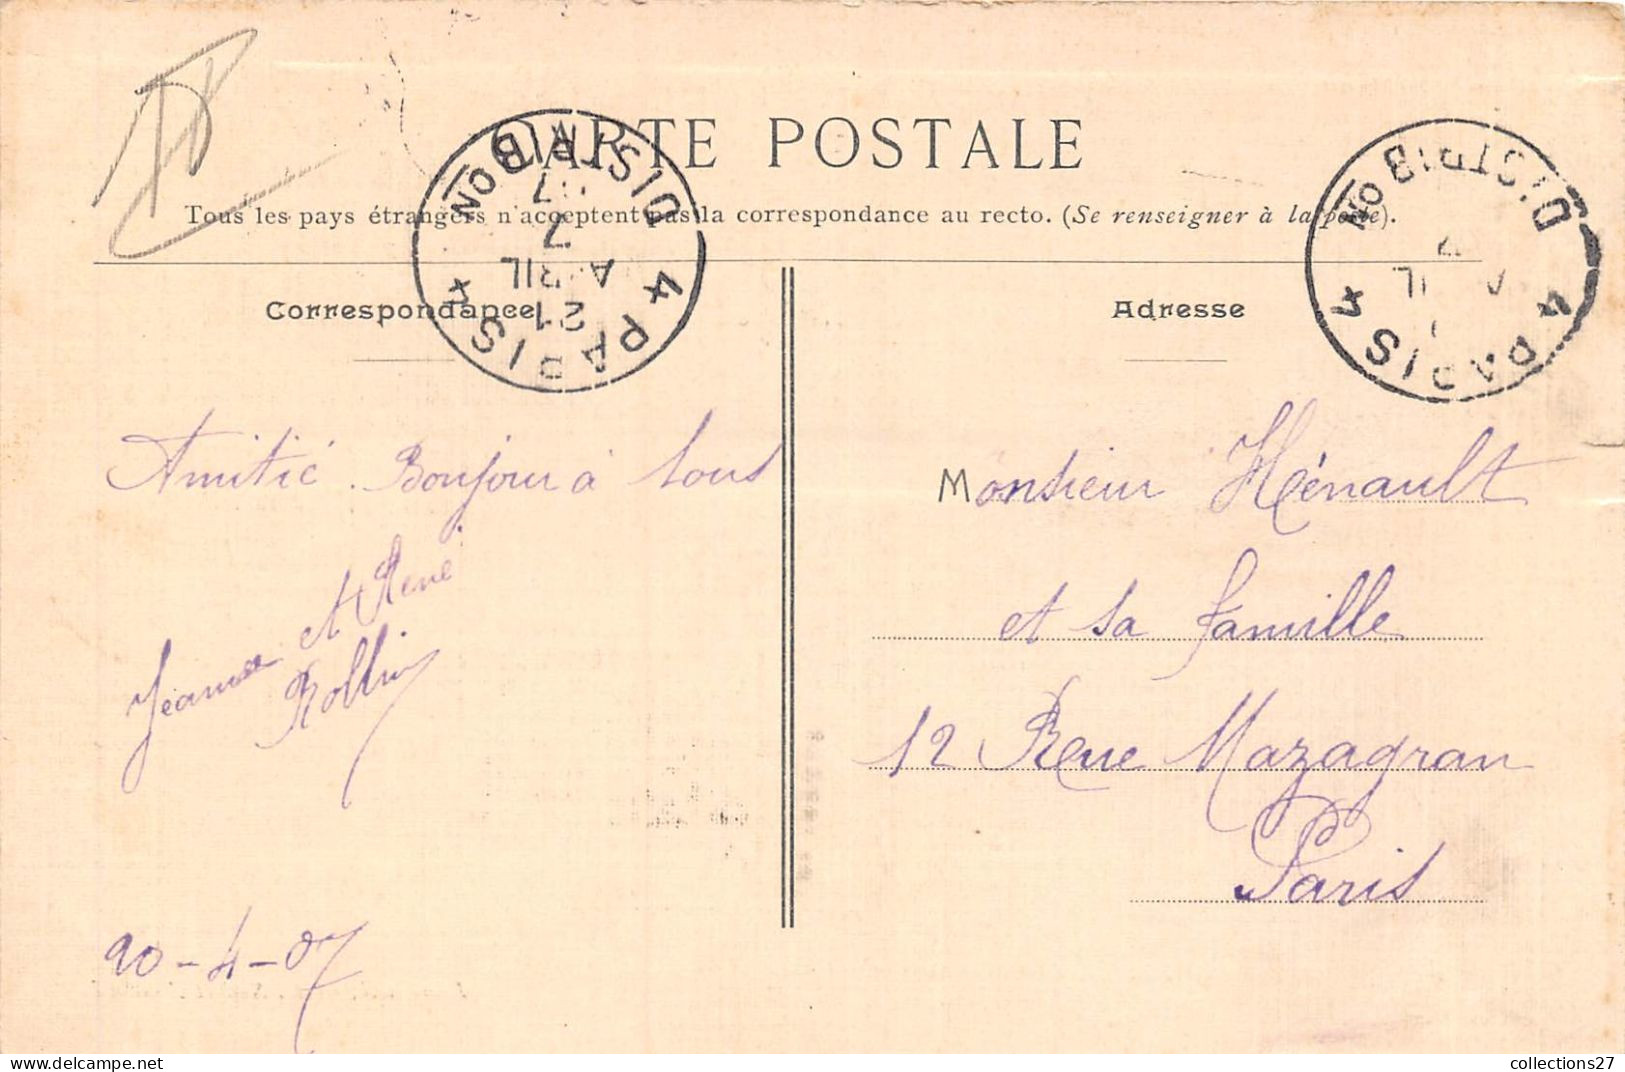 CARTE POSTALE
Tous les pays étrangers n'acceptent pas la correspondance au recto. (Se renseigner à la poste).
Correspondance
Adresse
4 PARIS 4
DISTRIBON
7
21
AVRIL
07
4 PARIS 4
DISTRIBON
Amitié. Bonjour à tous
Jeanne et René
Rollin
20-4-07
Monsieur Hénault
et sa famille
12 Rue Mazagran
Paris
collections27